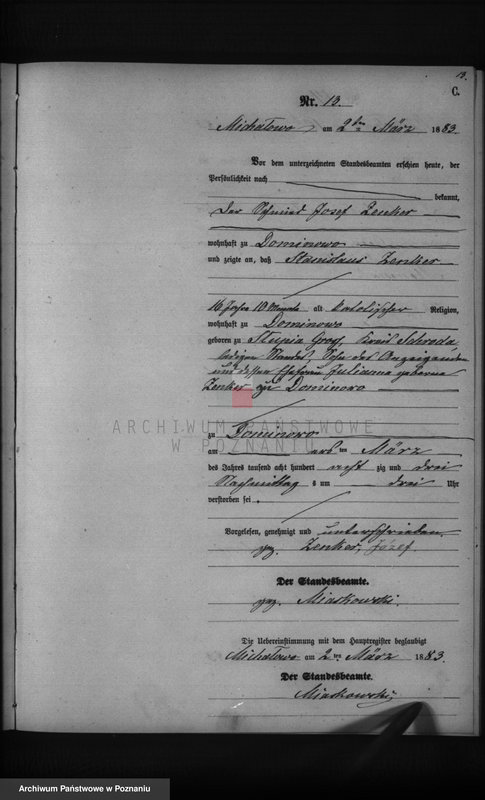 13.
C.
Nr. 13.
Michałowo am 2ten März 1883.
Vor dem unterzeichneten Standesbeamten erschien heute, der
Persönlichkeit nach
bekannt,
der Schmied Josef Zenker
wohnhaft zu Dominowo
und zeigte an, daß Stanislaus Zenker
16 Jahre 10 Monate alt katolischer Religion,
wohnhaft zu Dominowo
geboren zu Slupia Groß, Kreis Schroda
ledigen Standes, Sohn des Anzeigenden
und dessen Ehefrau Julianna geborene
Zenker zu Dominowo
ARCHIWUM PAŃSTWOWE
W POZNANIU
zu Dominowo
am ersten März
des Jahres tausend acht hundert acht zig und drei
Nachmittag s um drei Uhr
verstorben sei.
Vorgelesen, genehmigt und unterschrieben.
gez. Zenker, Józef
Der Standesbeamte.
gez. Miaskowski.
Die Uebereinstimmung mit dem Hauptregister beglaubigt
Michałowo am 2ten März 1883.
Der Standesbeamte.
Miaskowski
Archiwum Państwowe w Poznaniu